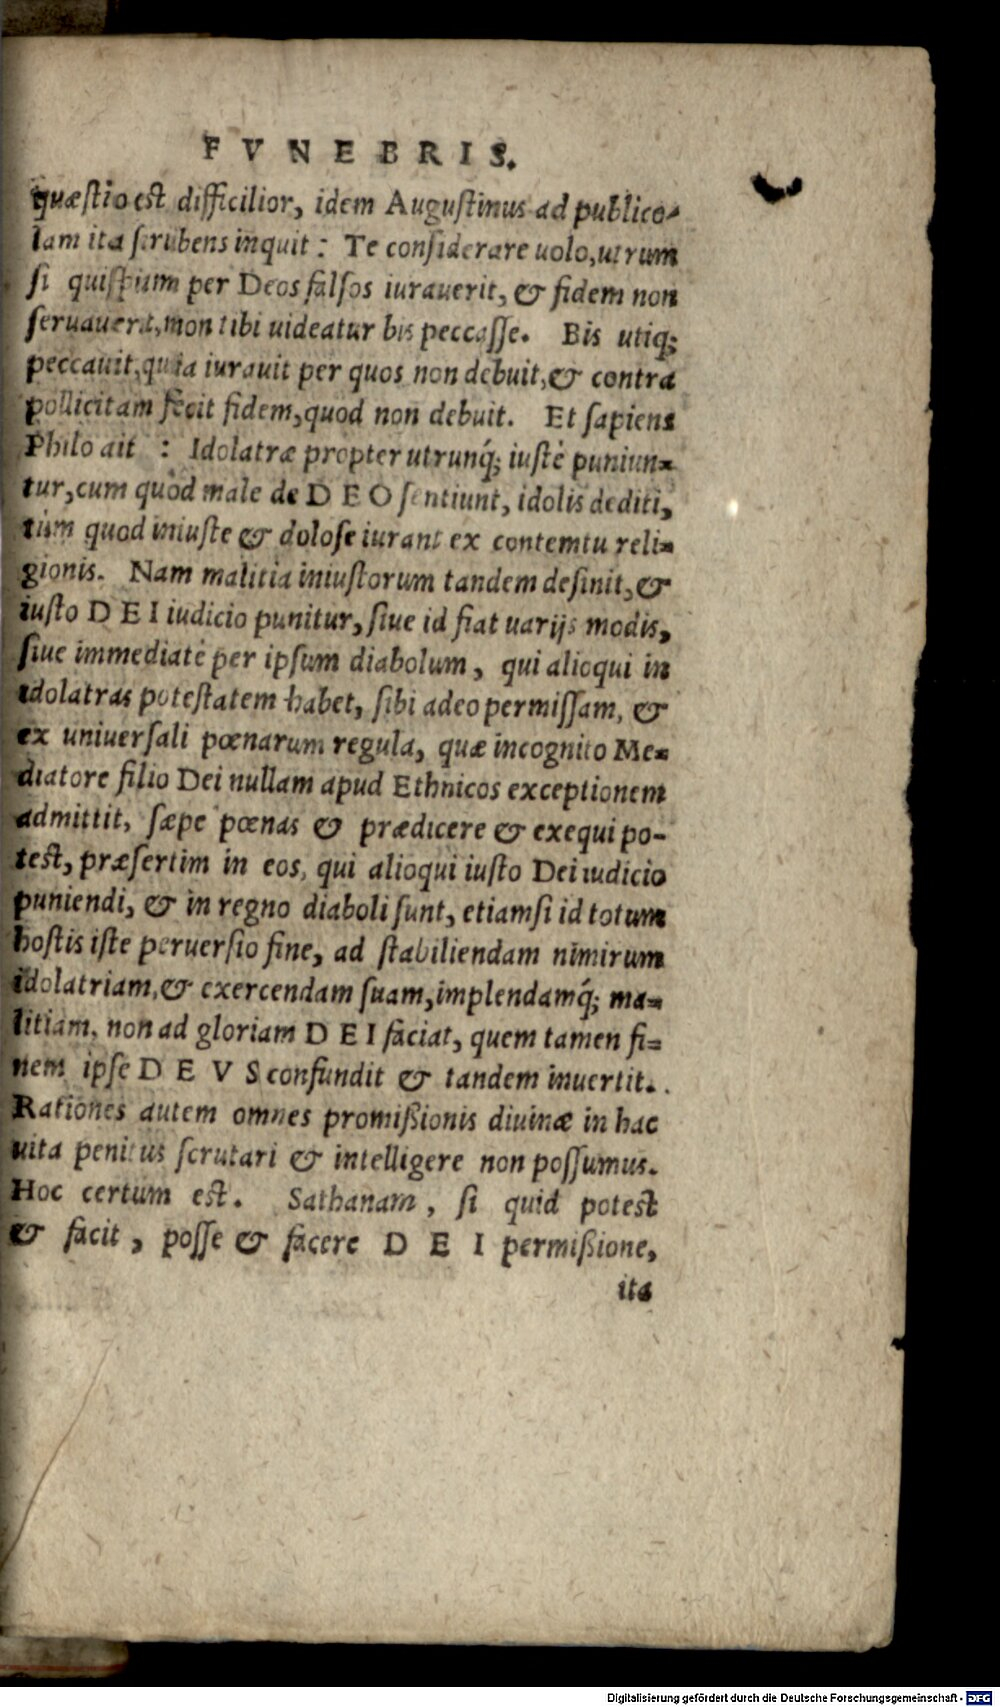 FVNEBRIS.
quæſtio est difficilior, idem Auguſtinus ad publico-
lam ita ſcribens inquit : Te conſiderare uolo, utrum
ſi quiſpiam per Deos falſos iurauerit, & fidem non
ſeruauerit, non tibi uideatur bis peccaſſe. Bis utiq;
peccauit, quia iurauit per quos non debuit, & contra
pollicitam fecit fidem, quod non debuit. Et ſapiens
Philo ait : Idolatræ propter utrunq́; iuſtè puniun-
tur, cum quòd male de DEO ſentiunt, idolis dediti,
tùm quod iniuſte & doloſe iurant ex contemtu reli-
gionis. Nam malitia iniuſtorum tandem deſinit, &
iuſto DEI iudicio punitur, ſiue id fiat uarijs modis,
ſiue immediatè per ipſum diabolum, qui alioqui in
idolatras poteſtatem habet, ſibi adeo permiſſam, &
ex uniuerſali pœnarum regula, quæ incognito Me-
diatore filio Dei nullam apud Ethnicos exceptionem
admittit, ſæpe pœnas & prædicere & exequi po-
test, præſertim in eos, qui alioqui iuſto Dei iudicio
puniendi, & in regno diaboli ſunt, etiamſi id totum
hoſtis iſte peruerſio fine, ad ſtabiliendam nimirum
idolatriam, & exercendam ſuam, implendamq́; ma-
litiam, non ad gloriam DEI faciat, quem tamen fi-
nem ipſe DEVS confundit & tandem inuertit.
Rationes autem omnes promißionis diuinæ in hac
uita penitus ſcrutari & intelligere non poſſumus.
Hoc certum est. Sathanam, ſi quid potest
& facit, poſſe & facere DEI permißione,
ita
Digitalisierung gefördert durch die Deutsche Forschungsgemeinschaft - DFG